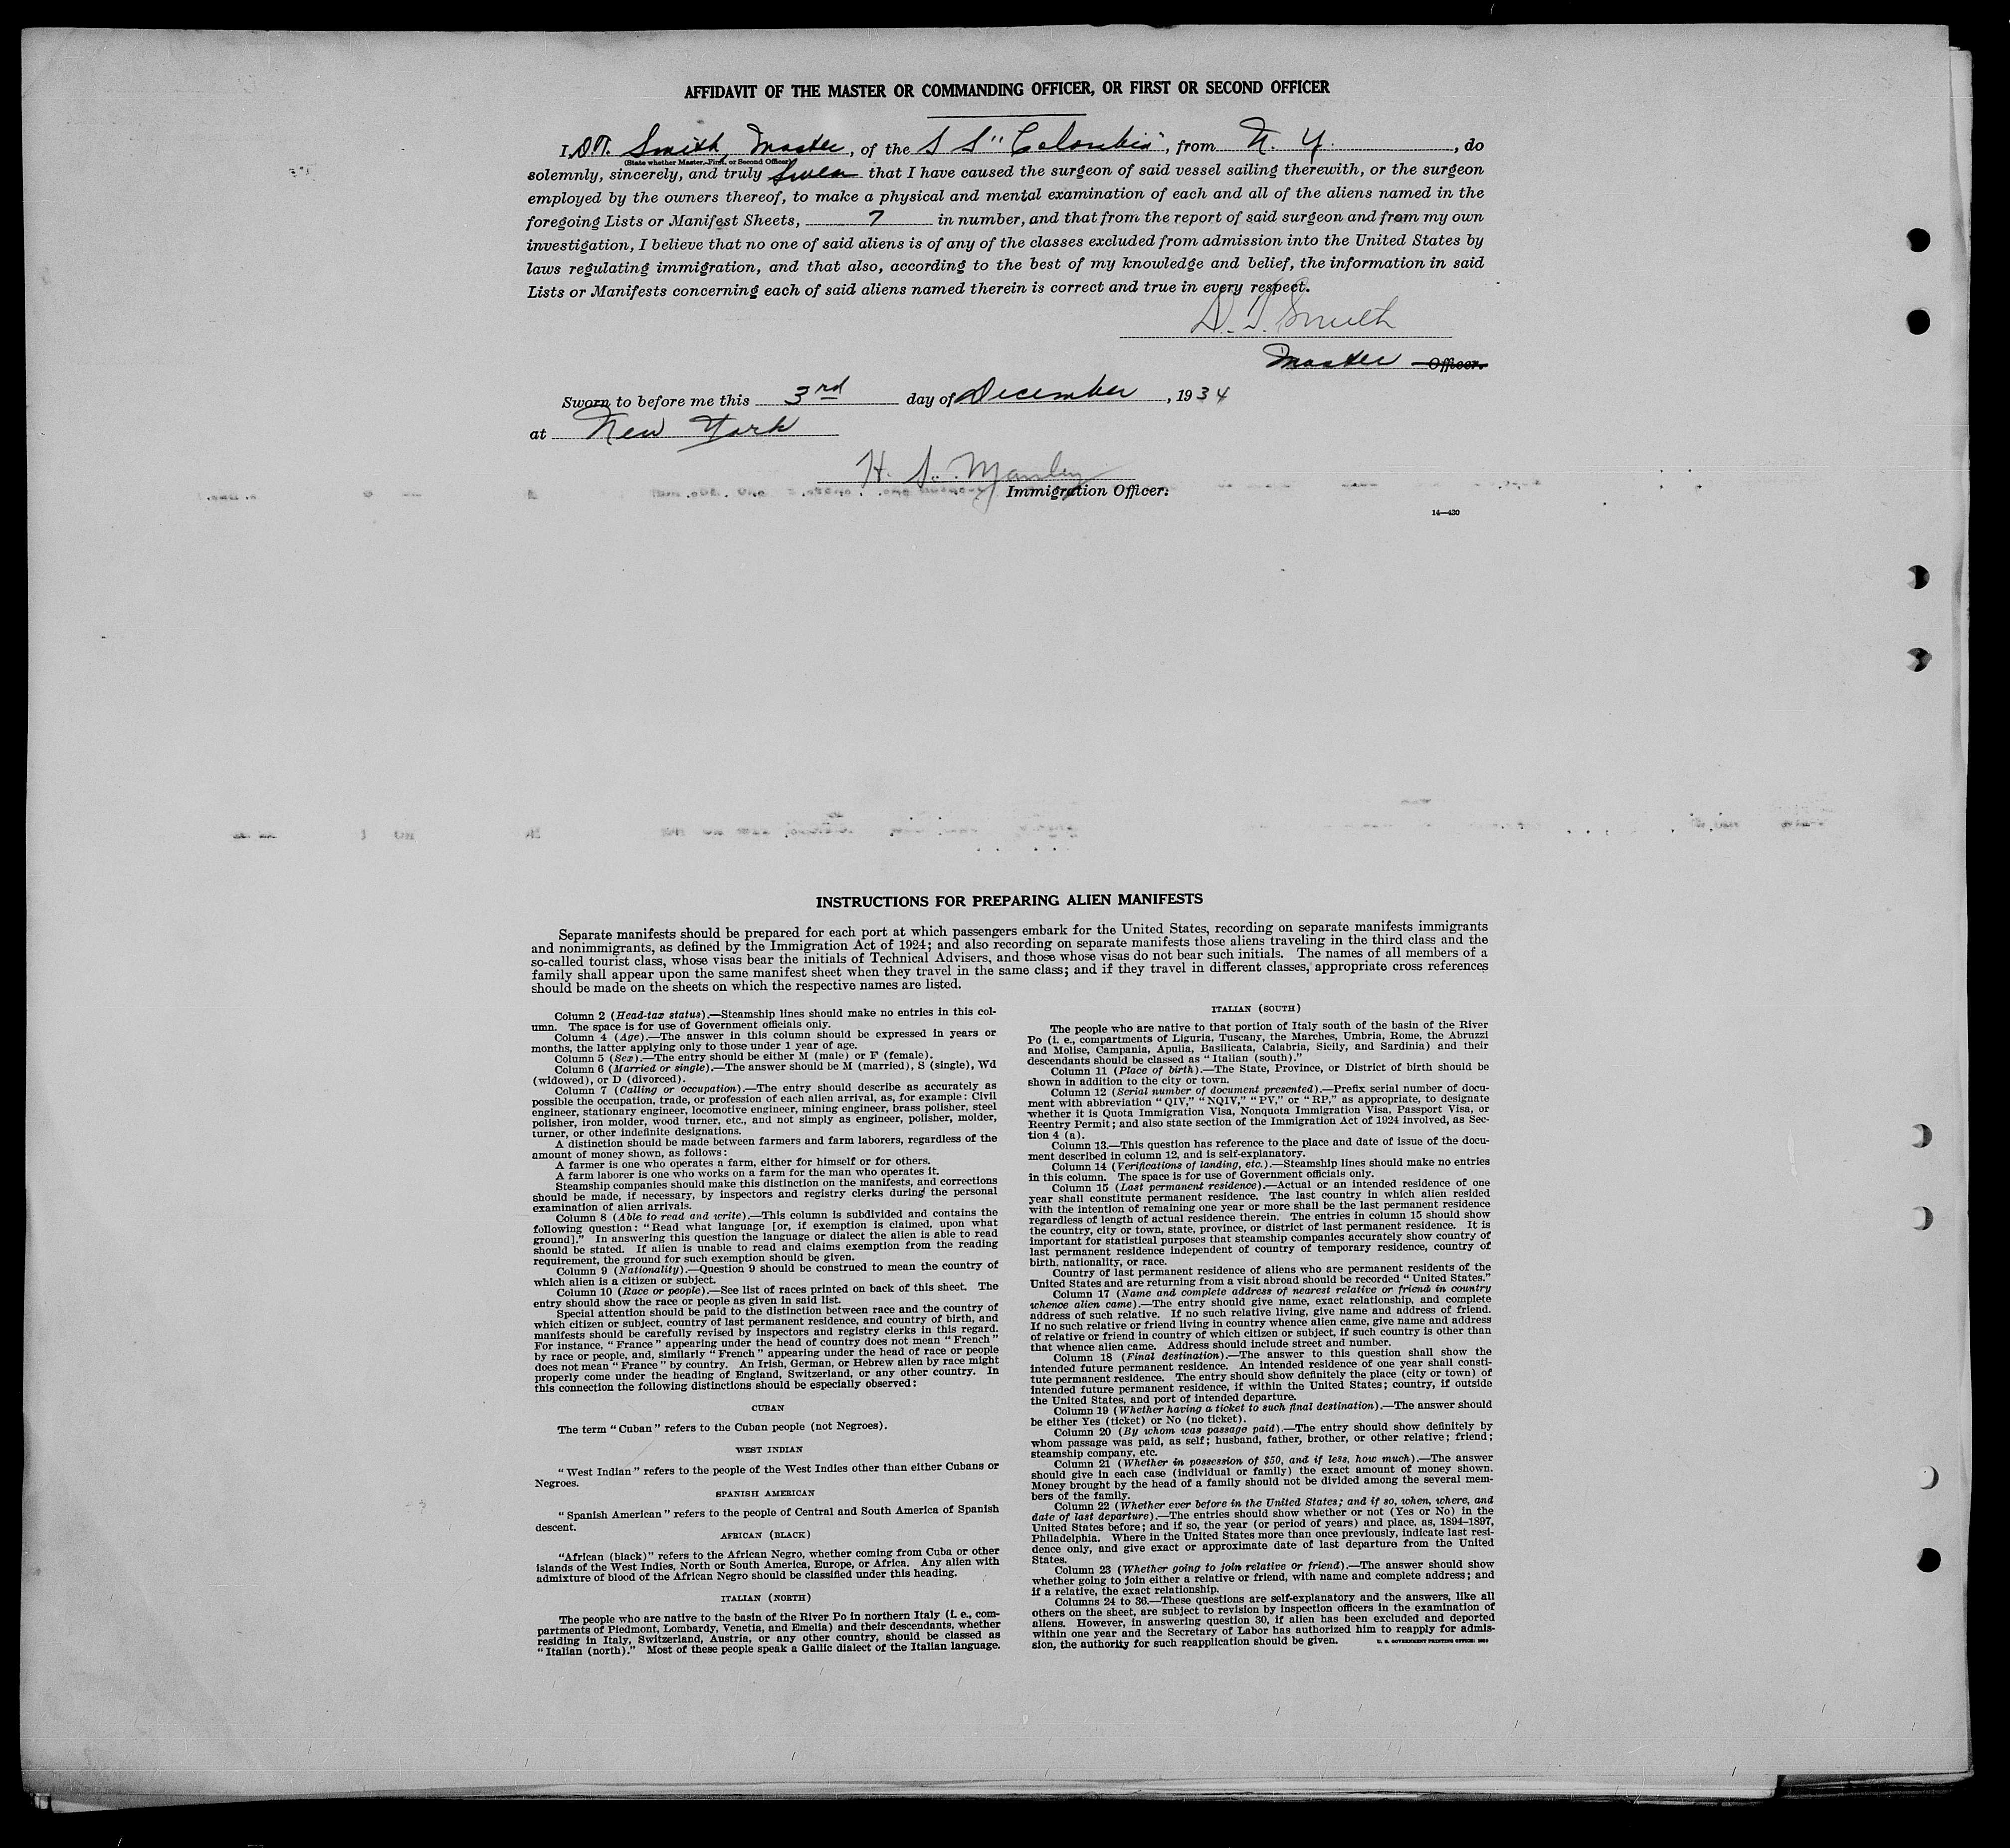 AFFIDAVIT OF THE MASTER OR COMMANDING OFFICER, OR FIRST OR SECOND OFFICER
I, D.T. Smith, Master, of the S S "Colombia", from N. Y., do
(State whether Master, First, or Second Officer)
solemnly, sincerely, and truly swear that I have caused the surgeon of said vessel sailing therewith, or the surgeon
employed by the owners thereof, to make a physical and mental examination of each and all of the aliens named in the
foregoing Lists or Manifest Sheets, 7 in number, and that from the report of said surgeon and from my own
investigation, I believe that no one of said aliens is of any of the classes excluded from admission into the United States by
laws regulating immigration, and that also, according to the best of my knowledge and belief, the information in said
Lists or Manifests concerning each of said aliens named therein is correct and true in every respect.
D. T. Smith
Master Officer.
Sworn to before me this 3rd day of December, 1934
at New York
H. S. Manley
Immigration Officer.
14—430
INSTRUCTIONS FOR PREPARING ALIEN MANIFESTS
Separate manifests should be prepared for each port at which passengers embark for the United States, recording on separate manifests immigrants
and nonimmigrants, as defined by the Immigration Act of 1924; and also recording on separate manifests those aliens traveling in the third class and the
so-called tourist class, whose visas bear the initials of Technical Advisers, and those whose visas do not bear such initials. The names of all members of a
family shall appear upon the same manifest sheet when they travel in the same class; and if they travel in different classes, appropriate cross references
should be made on the sheets on which the respective names are listed.
Column 2 (Head-tax status).—Steamship lines should make no entries in this col-
umn. The space is for use of Government officials only.
Column 4 (Age).—The answer in this column should be expressed in years or
months, the latter applying only to those under 1 year of age.
Column 5 (Sex).—The entry should be either M (male) or F (female).
Column 6 (Married or single).—The answer should be M (married), S (single), Wd
(widowed), or D (divorced).
Column 7 (Calling or occupation).—The entry should describe as accurately as
possible the occupation, trade, or profession of each alien arrival, as, for example: Civil
engineer, stationary engineer, locomotive engineer, mining engineer, brass polisher, steel
polisher, iron molder, wood turner, etc., and not simply as engineer, polisher, molder,
turner, or other indefinite designations.
A distinction should be made between farmers and farm laborers, regardless of the
amount of money shown, as follows:
A farmer is one who operates a farm, either for himself or for others.
A farm laborer is one who works on a farm for the man who operates it.
Steamship companies should make this distinction on the manifests, and corrections
should be made, if necessary, by inspectors and registry clerks during the personal
examination of alien arrivals.
Column 8 (Able to read and write).—This column is subdivided and contains the
following question: "Read what language [or, if exemption is claimed, upon what
ground]." In answering this question the language or dialect the alien is able to read
should be stated. If alien is unable to read and claims exemption from the reading
requirement, the ground for such exemption should be given.
Column 9 (Nationality).—Question 9 should be construed to mean the country of
which alien is a citizen or subject.
Column 10 (Race or people).—See list of races printed on back of this sheet. The
entry should show the race or people as given in said list.
Special attention should be paid to the distinction between race and the country of
which citizen or subject, country of last permanent residence, and country of birth, and
manifests should be carefully revised by inspectors and registry clerks in this regard.
For instance, "France" appearing under the head of country does not mean "French"
by race or people, and, similarly "French" appearing under the head of race or people
does not mean "France" by country. An Irish, German, or Hebrew alien by race might
properly come under the heading of England, Switzerland, or any other country. In
this connection the following distinctions should be especially observed:
CUBAN
The term "Cuban" refers to the Cuban people (not Negroes).
WEST INDIAN
"West Indian" refers to the people of the West Indies other than either Cubans or
Negroes.
SPANISH AMERICAN
"Spanish American" refers to the people of Central and South America of Spanish
descent.
AFRICAN (BLACK)
"African (black)" refers to the African Negro, whether coming from Cuba or other
islands of the West Indies, North or South America, Europe, or Africa. Any alien with
admixture of blood of the African Negro should be classified under this heading.
ITALIAN (NORTH)
The people who are native to the basin of the River Po in northern Italy (i. e., com-
partments of Piedmont, Lombardy, Venetia, and Emelia) and their descendants, whether
residing in Italy, Switzerland, Austria, or any other country, should be classed as
"Italian (north)." Most of these people speak a Gallic dialect of the Italian language.
ITALIAN (SOUTH)
The people who are native to that portion of Italy south of the basin of the River
Po (i. e., compartments of Liguria, Tuscany, the Marches, Umbria, Rome, the Abruzzi
and Molise, Campania, Apulia, Basilicata, Calabria, Sicily, and Sardinia) and their
descendants should be classed as "Italian (south)."
Column 11 (Place of birth).—The State, Province, or District of birth should be
shown in addition to the city or town.
Column 12 (Serial number of document presented).—Prefix serial number of docu-
ment with abbreviation "QIV," "NQIV," "PV," or "RP," as appropriate, to designate
whether it is Quota Immigration Visa, Nonquota Immigration Visa, Passport Visa, or
Reentry Permit; and also state section of the Immigration Act of 1924 involved, as Sec-
tion 4 (a).
Column 13.—This question has reference to the place and date of issue of the docu-
ment described in column 12, and is self-explanatory.
Column 14 (Verifications of landing, etc.).—Steamship lines should make no entries
in this column. The space is for use of Government officials only.
Column 15 (Last permanent residence).—Actual or an intended residence of one
year shall constitute permanent residence. The last country in which alien resided
with the intention of remaining one year or more shall be the last permanent residence
regardless of length of actual residence therein. The entries in column 15 should show
the country, city or town, state, province, or district of last permanent residence. It is
important for statistical purposes that steamship companies accurately show country of
last permanent residence independent of country of temporary residence, country of
birth, nationality, or race.
Country of last permanent residence of aliens who are permanent residents of the
United States and are returning from a visit abroad should be recorded "United States."
Column 17 (Name and complete address of nearest relative or friend in country
whence alien came).—The entry should give name, exact relationship, and complete
address of such relative. If no such relative living, give name and address of friend.
If no such relative or friend living in country whence alien came, give name and address
of relative or friend in country of which citizen or subject, if such country is other than
that whence alien came. Address should include street and number.
Column 18 (Final destination).—The answer to this question shall show the
intended future permanent residence. An intended residence of one year shall consti-
tute permanent residence. The entry should show definitely the place (city or town) of
intended future permanent residence, if within the United States; country, if outside
the United States, and port of intended departure.
Column 19 (Whether having a ticket to such final destination).—The answer should
be either Yes (ticket) or No (no ticket).
Column 20 (By whom was passage paid).—The entry should show definitely by
whom passage was paid, as self; husband, father, brother, or other relative; friend;
steamship company, etc.
Column 21 (Whether in possession of $50, and if less, how much).—The answer
should give in each case (individual or family) the exact amount of money shown.
Money brought by the head of a family should not be divided among the several mem-
bers of the family.
Column 22 (Whether ever before in the United States; and if so, when, where, and
date of last departure).—The entries should show whether or not (Yes or No) in the
United States before; and if so, the year (or period of years) and place, as, 1894–1897,
Philadelphia. Where in the United States more than once previously, indicate last resi-
dence only, and give exact or approximate date of last departure from the United
States.
Column 23 (Whether going to join relative or friend).—The answer should show
whether going to join either a relative or friend, with name and complete address; and
if a relative, the exact relationship.
Columns 24 to 36.—These questions are self-explanatory and the answers, like all
others on the sheet, are subject to revision by inspection officers in the examination of
aliens. However, in answering question 30, if alien has been excluded and deported
within one year and the Secretary of Labor has authorized him to reapply for admis-
sion, the authority for such reapplication should be given.
U. S. GOVERNMENT PRINTING OFFICE: